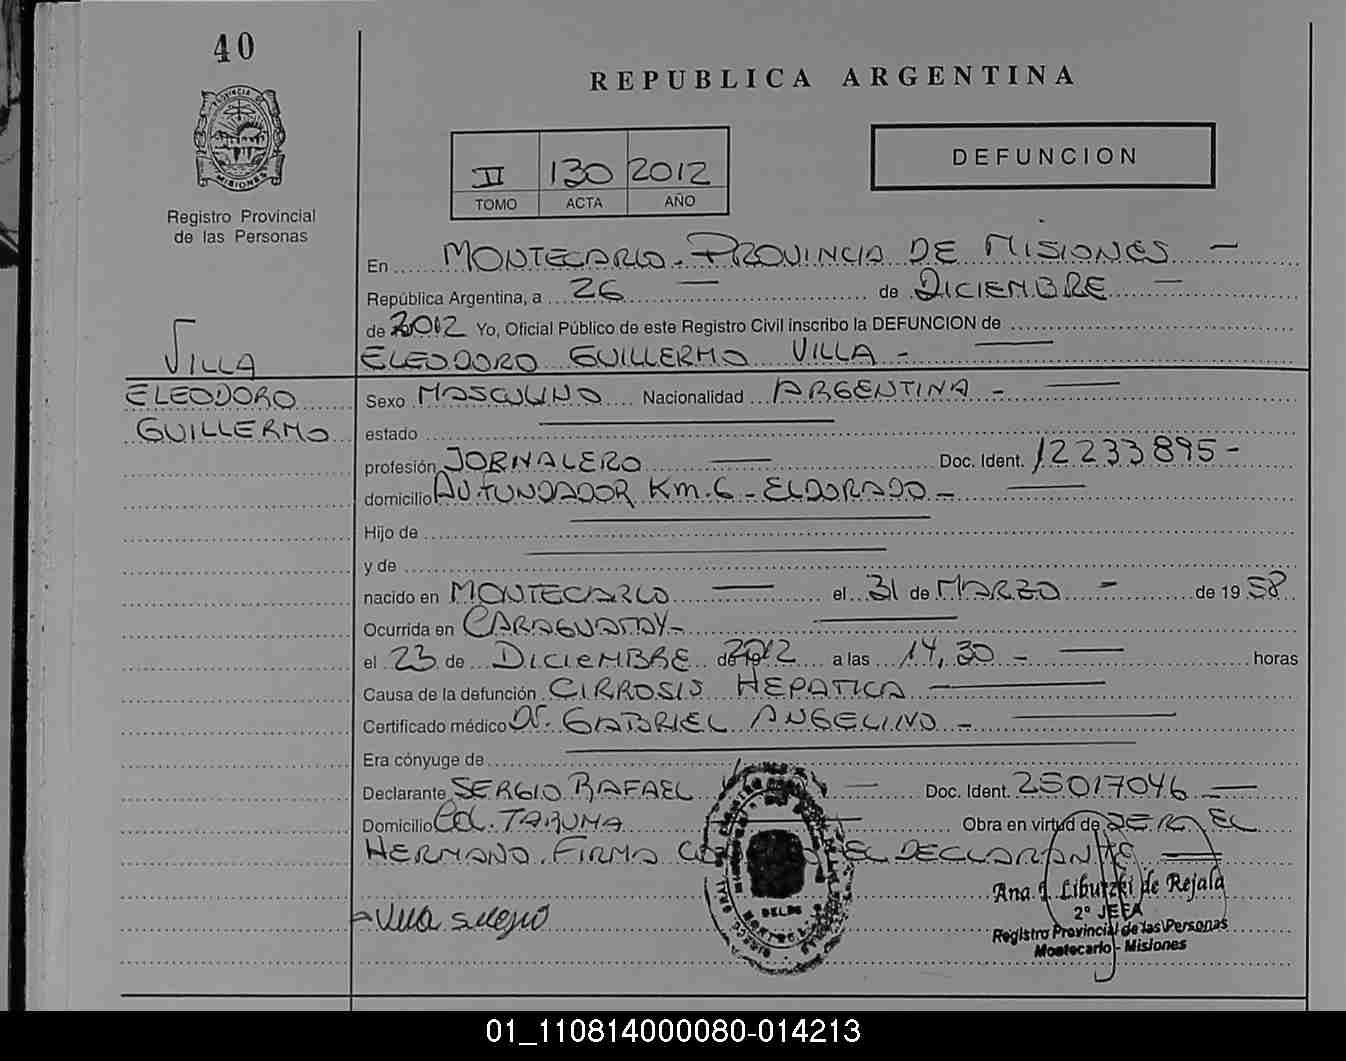 40
REPUBLICA ARGENTINA
PROVINCIA DE
MISIONES
Registro Provincial
de las Personas
II 130 2012
TOMO ACTA AÑO
DEFUNCION
En MONTECARLO. PROVINCIA DE MISIONES -
República Argentina, a 26 de DICIEMBRE
de 2012 Yo, Oficial Público de este Registro Civil inscribo la DEFUNCION de
VILLA
ELEODORO GUILLERMO VILLA -
ELEODORO
GUILLERMO
Sexo MASCULINO Nacionalidad ARGENTINA -
estado
profesión JORNALERO Doc. Ident. 12233895-
domicilio AV. FUNDADOR Km. 6 - ELDORADO -
Hijo de
y de
nacido en MONTECARLO el 31 de MARZO - de 19 58
Ocurrida en CARAGUATAY-
el 23 de DICIEMBRE de 2012 a las 14,30 - horas
Causa de la defunción CIRROSIS HEPATICA
Certificado médico Dr. GABRIEL ANGELINO -
Era cónyuge de
Declarante SERGIO RAFAEL Doc. Ident. 25017046
Domicilio COL. TARUMA Obra en virtud de SER EL
HERMANO. FIRMA EL DECLARANTE
Villa Sergio
Ana I. Liburzki de Rejala
2º JEFA
Registro Provincial de las Personas
Montecarlo - Misiones
01_110814000080-014213